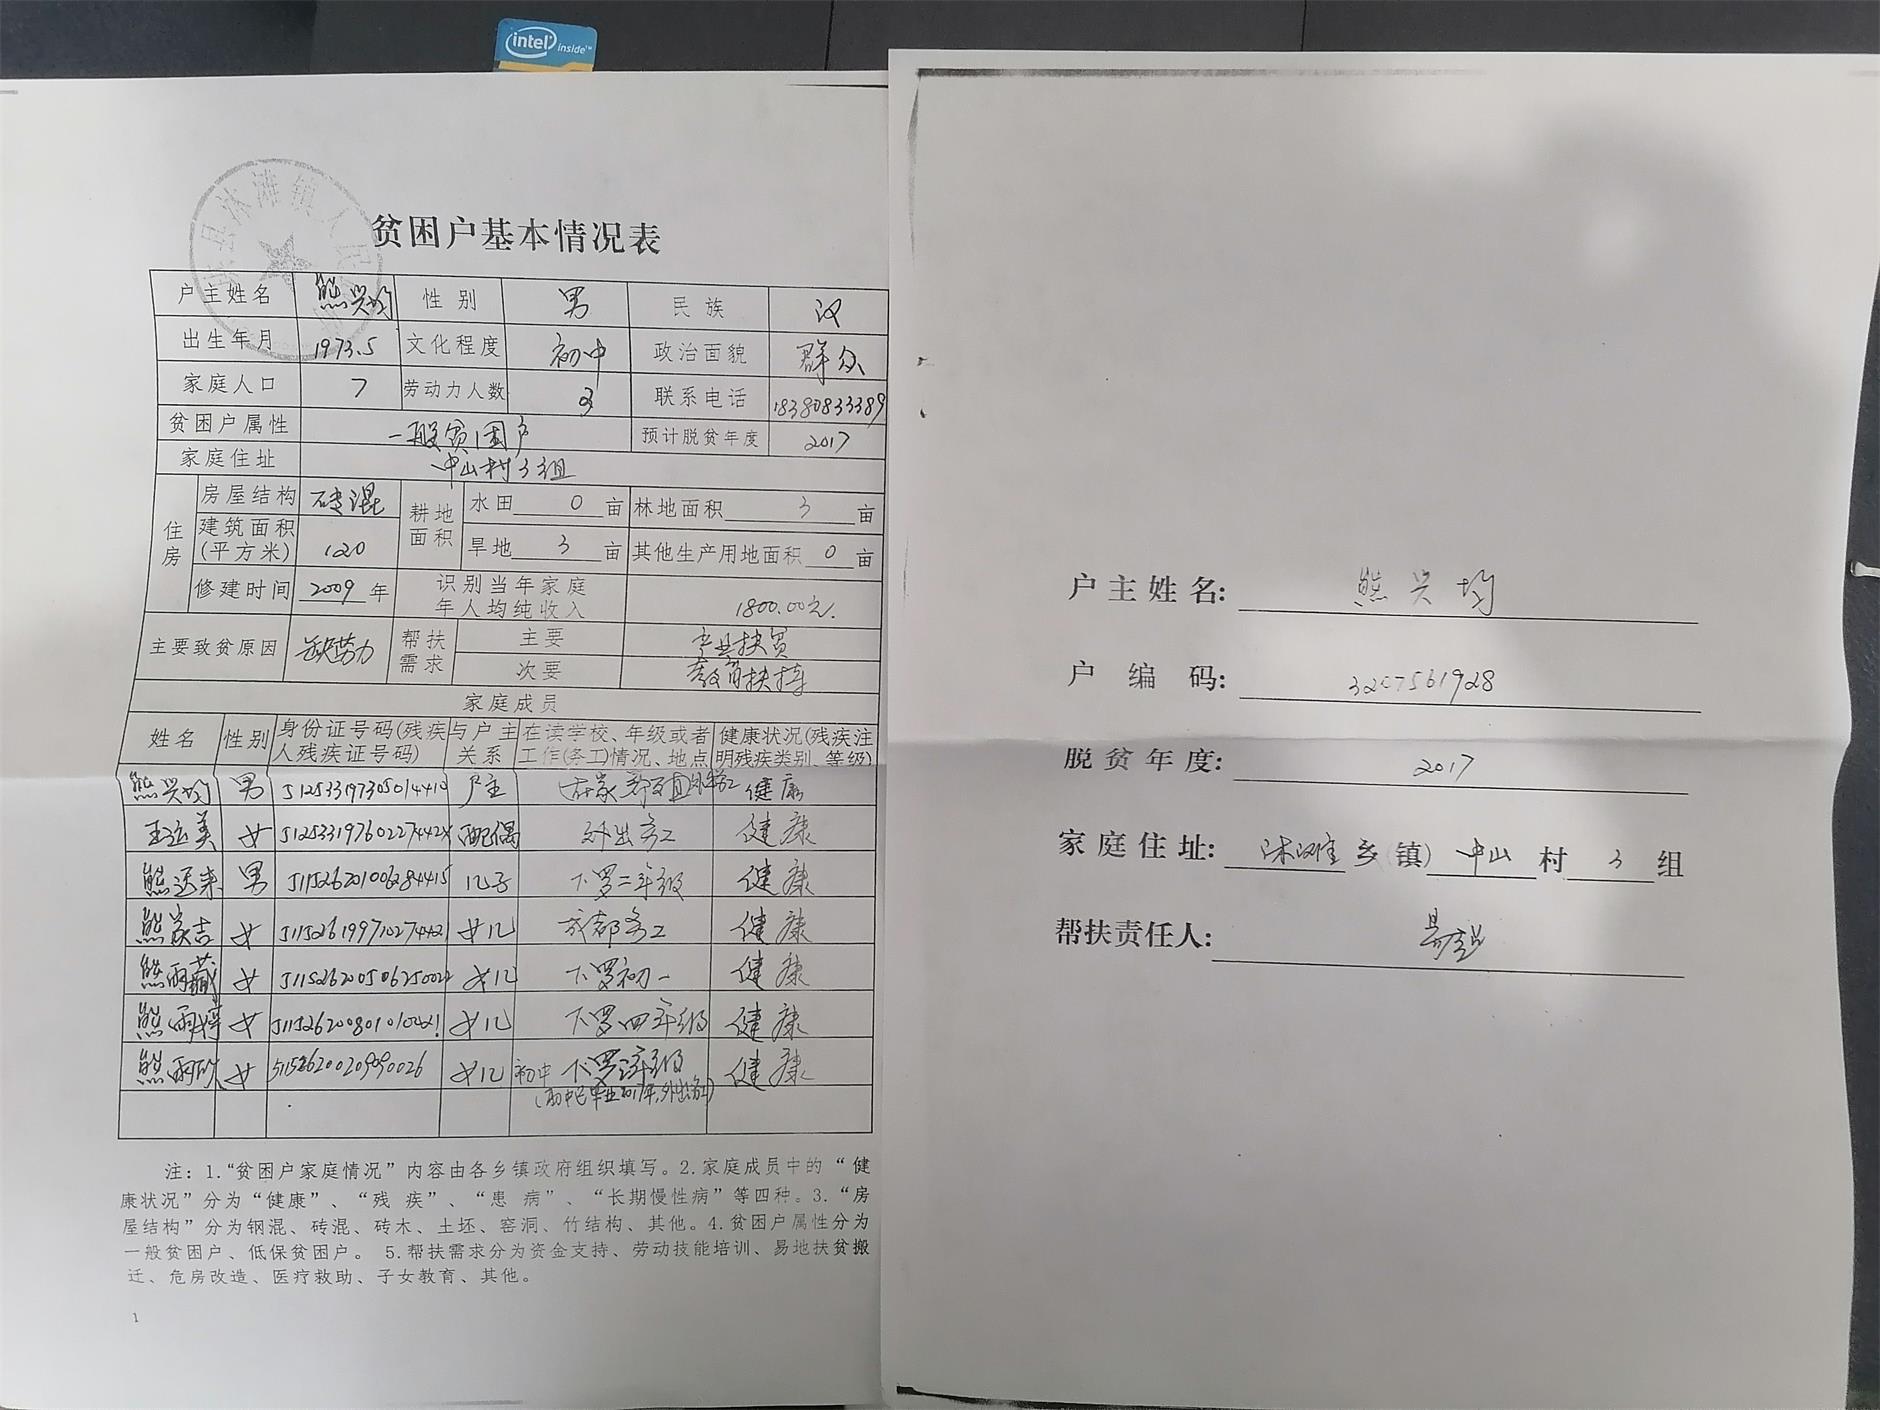 intel inside™
沐滩镇人民
贫困户基本情况表
户主姓名 熊兴均 性别 男 民族 汉
出生年月 1973.5 文化程度 初中 政治面貌 群众
家庭人口 7 劳动力人数 3 联系电话 18380833389
贫困户属性 一般贫困户 预计脱贫年度 2017
家庭住址 中山村3组
住房 房屋结构 砖混 耕地面积 水田 0 亩 林地面积 3 亩
建筑面积(平方米) 120 旱地 3 亩 其他生产用地面积 0 亩
修建时间 2009 年 识别当年家庭年人均纯收入 1800.00元.
主要致贫原因 缺劳力 帮扶需求 主要 产业扶贫
次要 教育扶持
家庭成员
姓名 性别 身份证号码(残疾人残疾证号码) 与户主关系 在读学校、年级或者工作(务工)情况、地点 健康状况(残疾注明残疾类别、等级)
熊兴均 男 户主 健康
王运美 女 配偶 外出务工 健康
熊 男 511526201006284415 儿子 下罗二年级 健康
熊 吉 女 女儿 成都务工 健康
熊雨 女 女儿 下罗初一 健康
熊雨婷 女 女儿 下罗四年级 健康
熊雨欣 女 女儿 初中 下罗 年级 健康
(初中已毕业2017年,外出务工)
注：1.“贫困户家庭情况”内容由各乡镇政府组织填写。2.家庭成员中的“健
康状况”分为“健康”、“残 疾”、“患 病”、“长期慢性病”等四种。3.“房
屋结构”分为钢混、砖混、砖木、土坯、窑洞、竹结构、其他。4.贫困户属性分为
一般贫困户、低保贫困户。 5.帮扶需求分为资金支持、劳动技能培训、易地扶贫搬
迁、危房改造、医疗救助、子女教育、其他。
1
户主姓名: 熊兴均
户编码: 3207561928
脱贫年度: 2017
家庭住址: 沐滩 乡(镇) 中山 村 3 组
帮扶责任人: